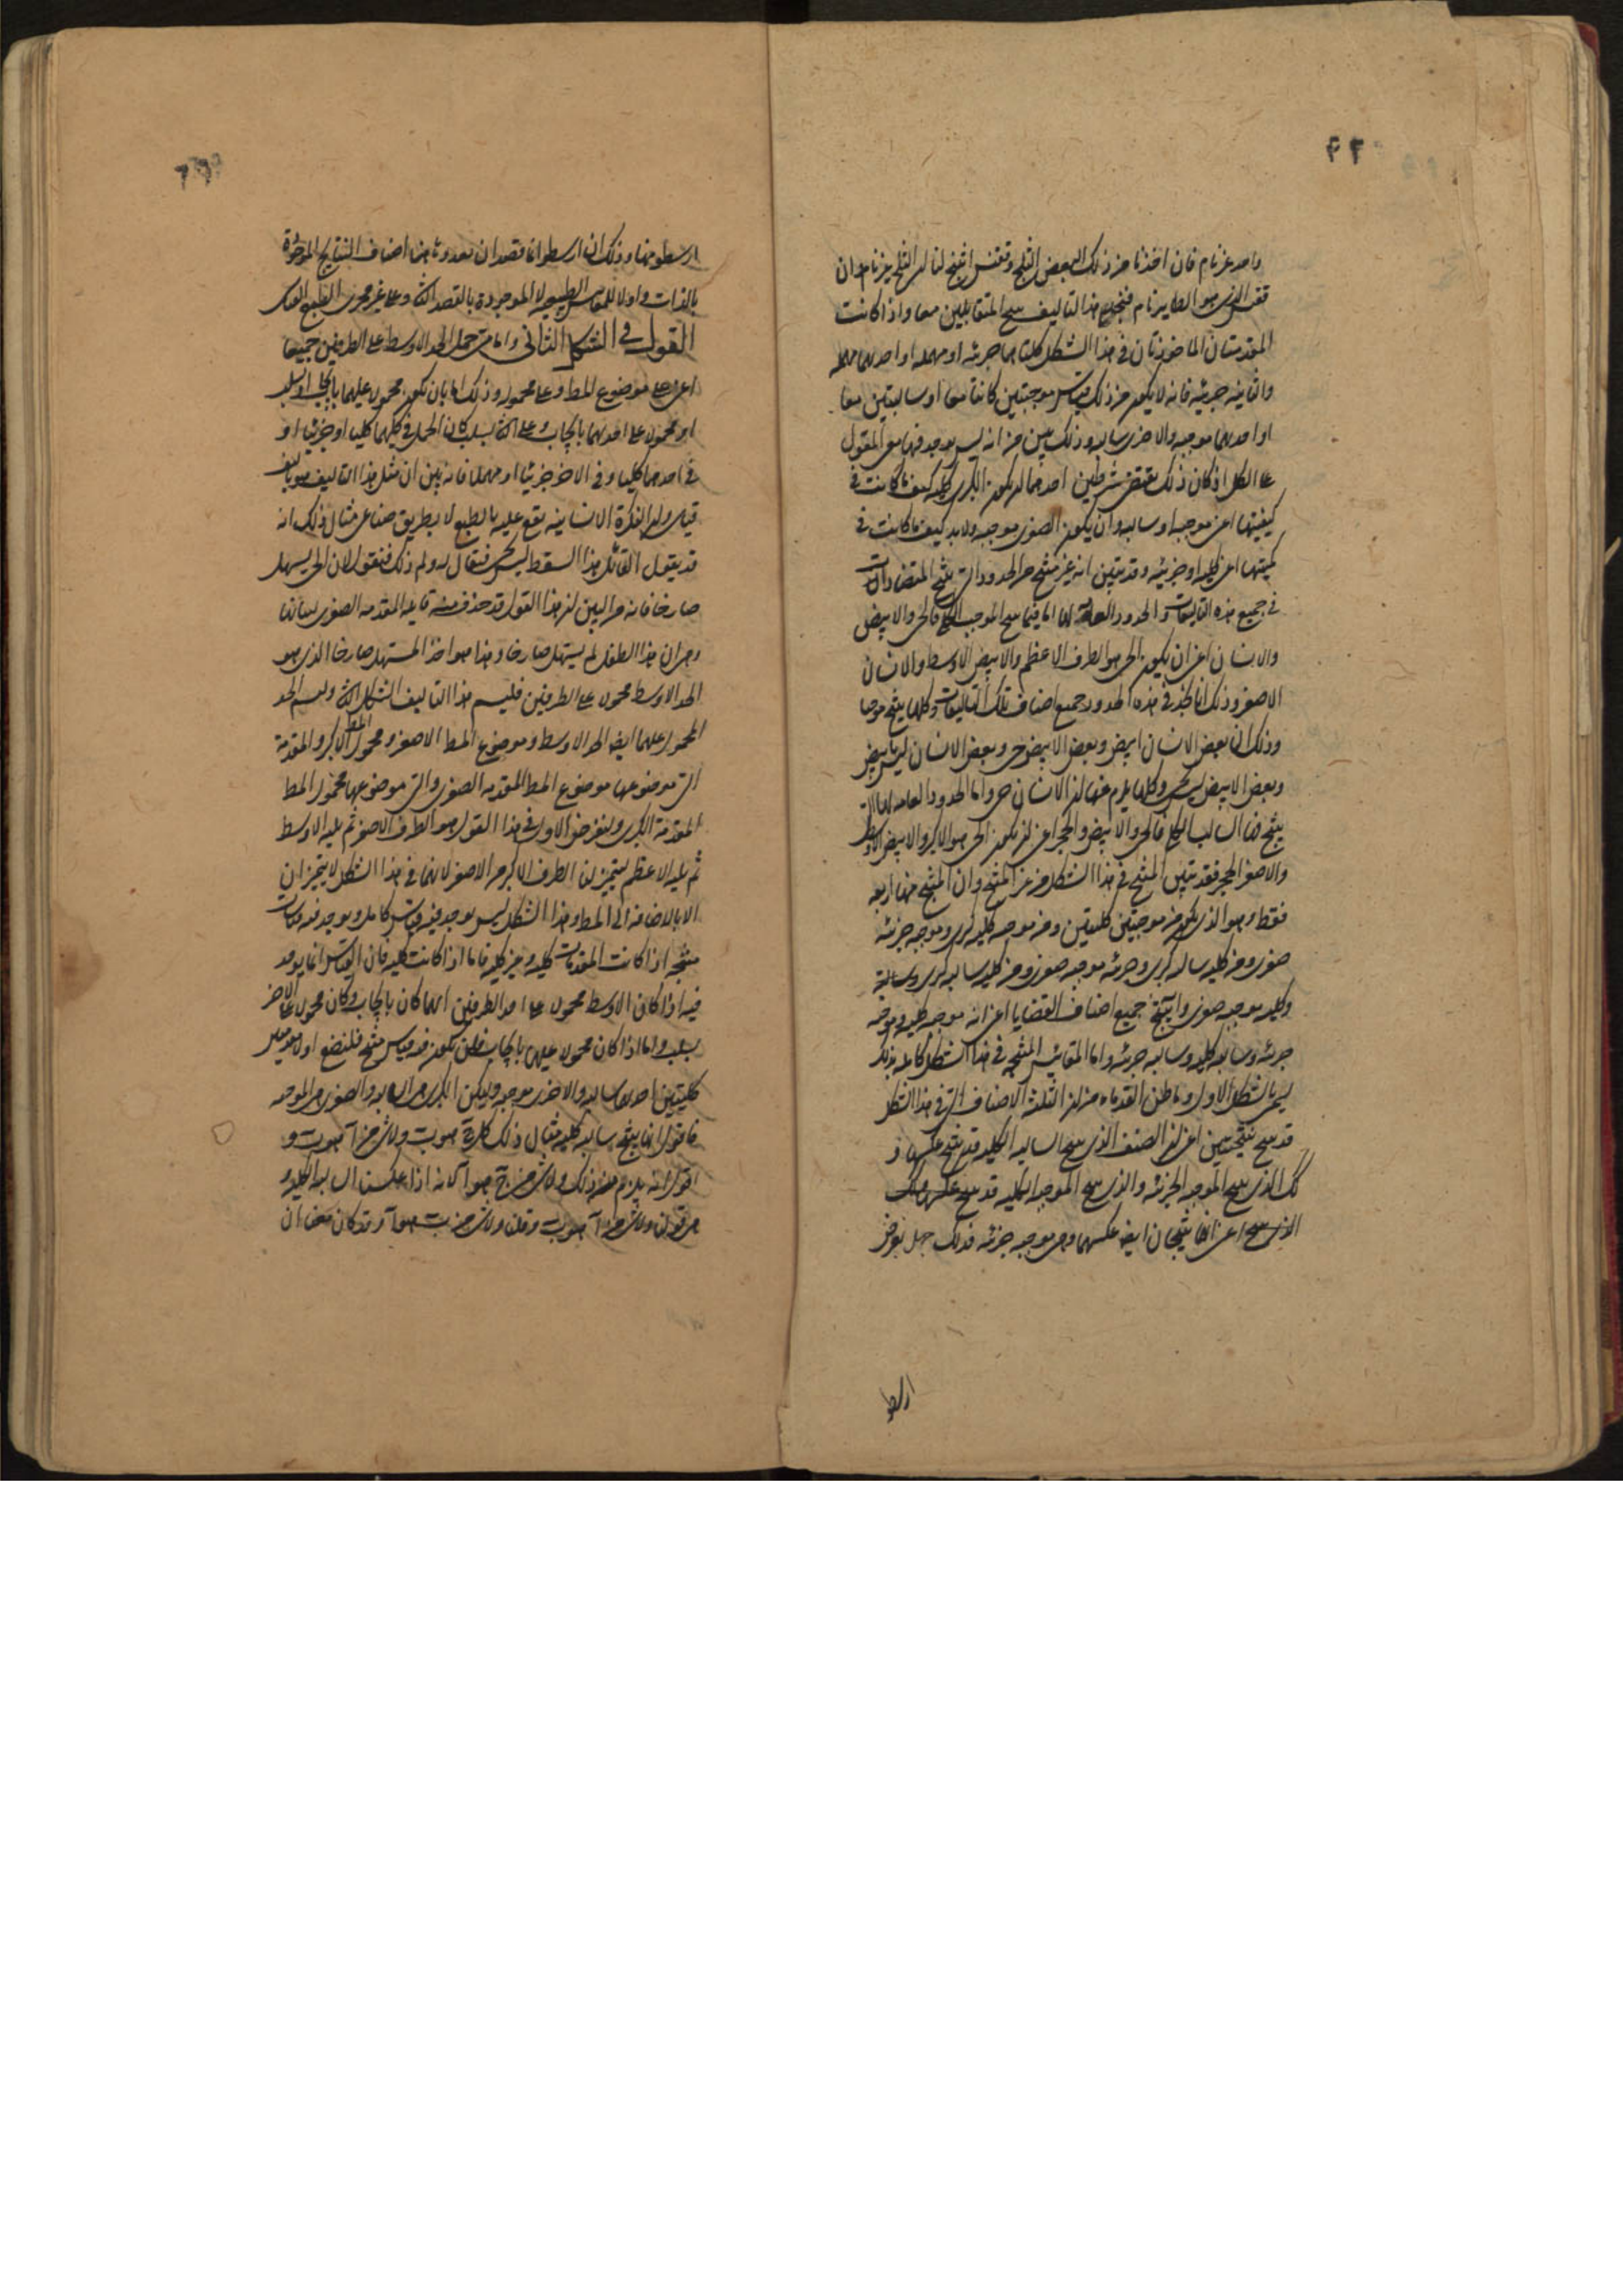 واحد غير نام فان اخذنا من ذلك البعض الثلج وققنس انتج لنا ان الثلج غير نام وان
ققنس الذي هو الطاير نام فنجد في هذا التاليف ينتج المتقابلين معا واذا كانت
المقدمتان الماخوذتان في هذا الشكل كلتاهما جزئية او مهملة او احديهما مهملة
والثانية جزئية فانه لا يكون من ذلك قياس موجبتين كانتا معا او سالبتين معا
او احديهما موجبة والاخرى سالبة وذلك بين من انه ليس يوجد فيها معنى المقول
على الكل اذ كان ذلك يقتضي شرطين احدهما ان يكون الكبرى كلية كيف ما كانت في
كيفيتها اعني موجبة او سالبة وان يكون الصغرى موجبة ولا بد كيف ما كانت في
كميتها اعني كلية او جزئية وقد يتبين انه غير منتج من الحدود التي ينتج المتضادات
في جميع هذه التاليفات والحدود العامة لها اما فيما ينتج الموجب الكلي فالحي والابيض
والانسان اعني ان يكون الحي هو الطرف الاعظم والابيض الاوسط والانسان
الاصغر وذلك انا نجد في هذه الحدود جميع اصناف تلك التاليفات وكلها ينتج موجبا
وذلك ان بعض الانسان ابيض وبعض الابيض حي وبعض الانسان ليس بابيض
وبعض الابيض ليس بحي وكلها يلزم عنها ان الانسان حي واما الحدود العامة لها التي
ينتج فيها السالب الكلي فالحي والابيض والحجر اعني ان يكون الحي هو الاكبر والابيض الاوسط
والاصغر الحجر فقد تبين المنتج في هذا الشكل من غير المنتج وان المنتج منها اربعة
فقط وهو الذي يكون من موجبتين كليتين ومن موجبة كلية كبرى وموجبة جزئية
صغرى ومن كلية سالبة كبرى وجزئية موجبة صغرى ومن كلية سالبة كبرى
وكلية موجبة صغرى وانه ينتج جميع اصناف القضايا اعني انه موجبة كلية وموجبة
جزئية وسالبة كلية وسالبة جزئية واما المقاييس المنتجة في هذا الشكل كاملة ولذلك
يسمى بالشكل الاول وما ظن القدماء من ان الثلثة الاصناف التي في هذا الشكل
قد ينتج نتيجتين اعني ان الصنف الذي ينتج السالبة الكلية قد ينتج عكسها و
كذلك الذي ينتج الموجبة الجزئية والذي ينتج الموجبة الكلية قد ينتج عكسها
الذي ينتج اعني انها ينتجان ايضا عكسهما وهي موجبة جزئية فذلك جهل بغرض
ارسطو
ارسطو منها وذلك ان ارسطو انما قصد ان يعدد هاهنا اصناف النتايج الموجودة
بالذات واولا للمقاييس الطبيعية لا الموجودة بالقصد الثاني وعلى غير مجرى الطبع
القول في الشكل الثاني واما متى حمل الحد الاوسط على الطرفين جميعا
اعني على موضوع المطلوب وعلى محموله وذلك اما بان يكون محمولا عليهما بايجاب او سلب
او محمولا على احدهما بايجاب وعلى الثاني بسلب كان الحمل في كليهما كليا او جزئيا او
في احدهما كليا وفي الاخر جزئيا او مهملا فانه بين ان مثل هذا التاليف هو تاليف
قياسي وان الفكرة الانسانية يقع عليه بالطبع لا بطريق صناعي مثال ذلك انه
قد يقول القائل هذا السقط ليس بحي فيقال له ولم ذلك فيقول لان الحي يستهل
صارخا فانه من البين ان هذا القول قد حذف منه قائله المقدمة الصغرى
وهي ان هذا الطفل لم يستهل صارخا وهذا هو اخذ المستهل صارخا الذي هو
الحد الاوسط محمولا على الطرفين فليسم هذا التاليف الشكل الثاني وليسم الحد
المحمول عليهما ايضا الحد الاوسط وموضوع المط الاصغر ومحمول المط الاكبر والمقدمة
التي موضوعها موضوع المط المقدمة الصغرى والتي موضوعها محمول المط
المقدمة الكبرى ولنفرض الاول في هذا القول هو الطرف الاصغر ثم يليه الاوسط
ثم يليه الاعظم ليتميز لنا الطرف الاكبر من الاصغر لانهما في هذا الشكل لا يتميزان
الا بالاضافة الى المط وهذا الشكل ليس يوجد فيه قياس كامل ويوجد فيه قياسات
منتجة اذا كانت المقدمات كلية وغير كلية فاما اذا كانت كلية فان القياس انما يوجد
فيه اذا كان الاوسط محمولا على احد الطرفين ايهما كان بايجاب وكان محمولا على الاخر
بسلب واما اذا كان محمولا عليهما بايجاب فلن يكون فيه قياس منتج فلنضع اولا مقدمتين
كليتين احديهما سالبة والاخرى موجبة وليكن الكبرى هي السالبة والصغرى هي الموجبة
فاقول انها ينتج سالبة كلية مثال ذلك كل ج هو ب ولا شي من آ هو ب و
اقول انه يلزم عن ذلك ولا شي من ج هو آ لانه اذا عكسنا السالبة الكلية و
هي قولنا ولا شي من آ هو ب وقلنا ولا شي من ب هو آ وقد كان معنا ان